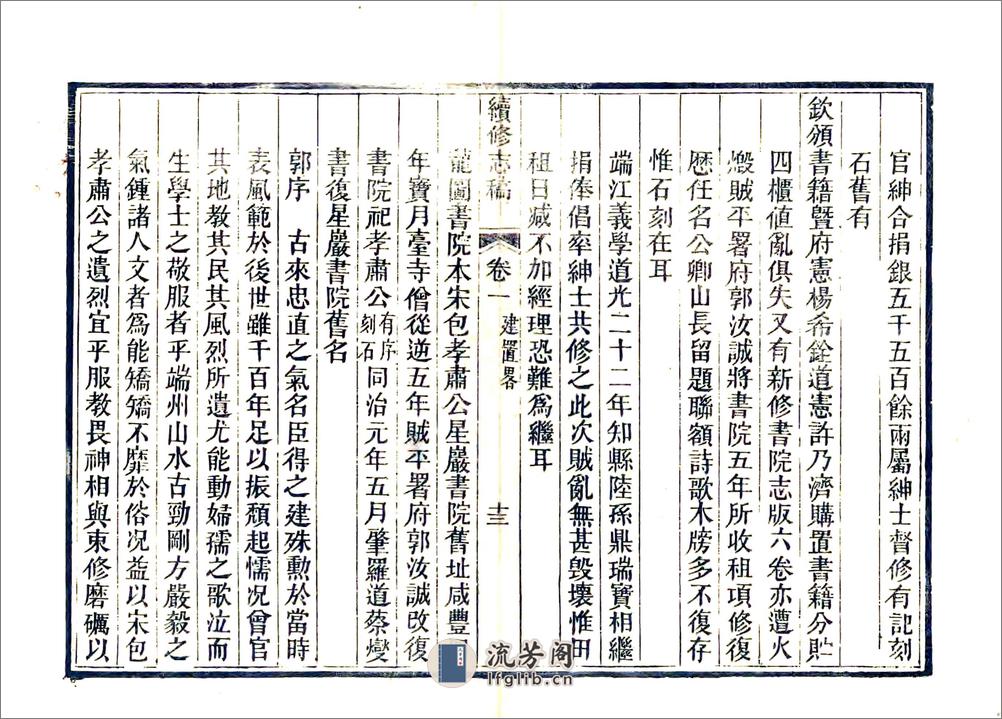 官紳合捐銀五千五百餘兩屬紳士督修有記刻
石舊有
欽頒書籍暨府憲楊希銓道憲許乃濟購置書籍分貯
四櫃值亂俱失又有新修書院志版六卷亦遭火
燬賊平署府郭汝誠將書院五年所收租項修復
歷任名公卿山長留題聯額詩歌木牓多不復存
惟石刻在耳
端江義學道光二十二年知縣陸孫鼎瑞寶相繼
捐奉倡率紳士共修之此次賊亂無甚毀壞惟田
租日减不加經理恐難爲繼耳
續修志稿 卷一 建置畧 十三
龍圖書院本宋包孝肅公星巖書院舊址咸豐四
年寶月臺寺僧從逆五年賊平署府郭汝誠改復
書院祀孝肅公有序刻石同治元年五月肇羅道蔡燮
書復星巖書院舊名
郭序 古來忠直之氣名臣得之建殊勳於當時
表風範於後世雖千百年足以振頹起懦况曾官
其地教其民其風烈所遺尤能動婦孺之歌泣而
生學士之敬服者乎端州山水古勁剛方嚴毅之
氣鍾諸人文者爲能矯矯不靡於俗况益以宋包
孝肅公之遺烈宜乎服教畏神相與束修磨礪以
流芳阁
lfglib.cn